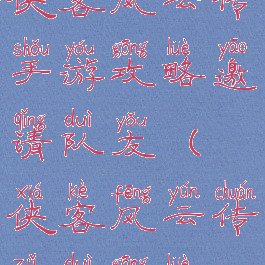 侠客风云传
shǒu yóu gōng lüè yāo
手游攻略邀
qǐng duì yǒu
请队友（
xiá kè fēng yún chuán
侠客风云传
duì gōng lüè